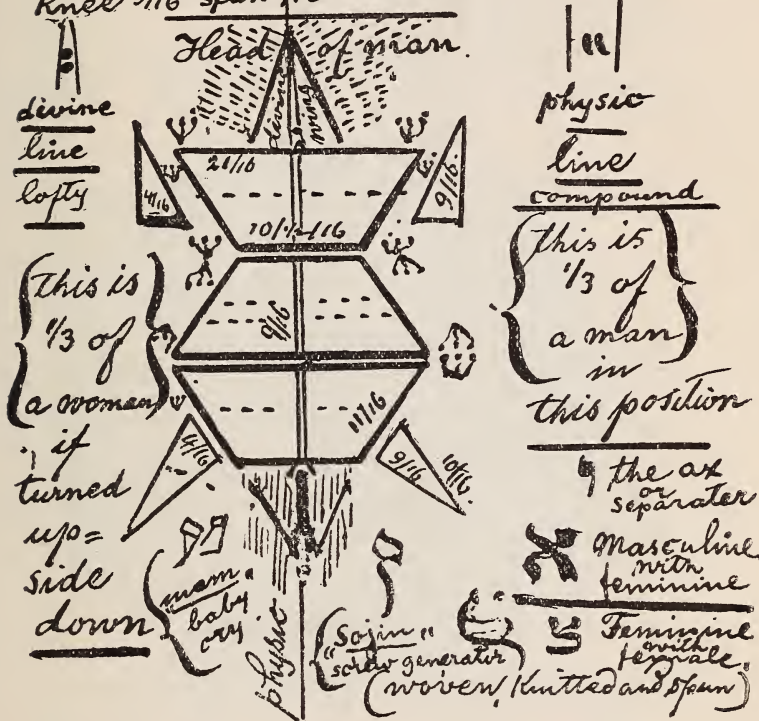 Knee 9/16 span
Head of man.
divine
line
lofty
physic
line
compound
divine wing
21/16
4/16
9/16.
10/16
{this is
1/3 of
a woman}
if
turned
up=
side
down
{this is
1/3 of
a man}
in
this position
9/16
11/16
4/16
9/16
10/16.
the ax
or
separater
Masculine
with
feminine
Feminine
with
female.
{mam"
baby
cry.
physic
{"Sojin"
screw generator
(woven, Knitted and Spun)